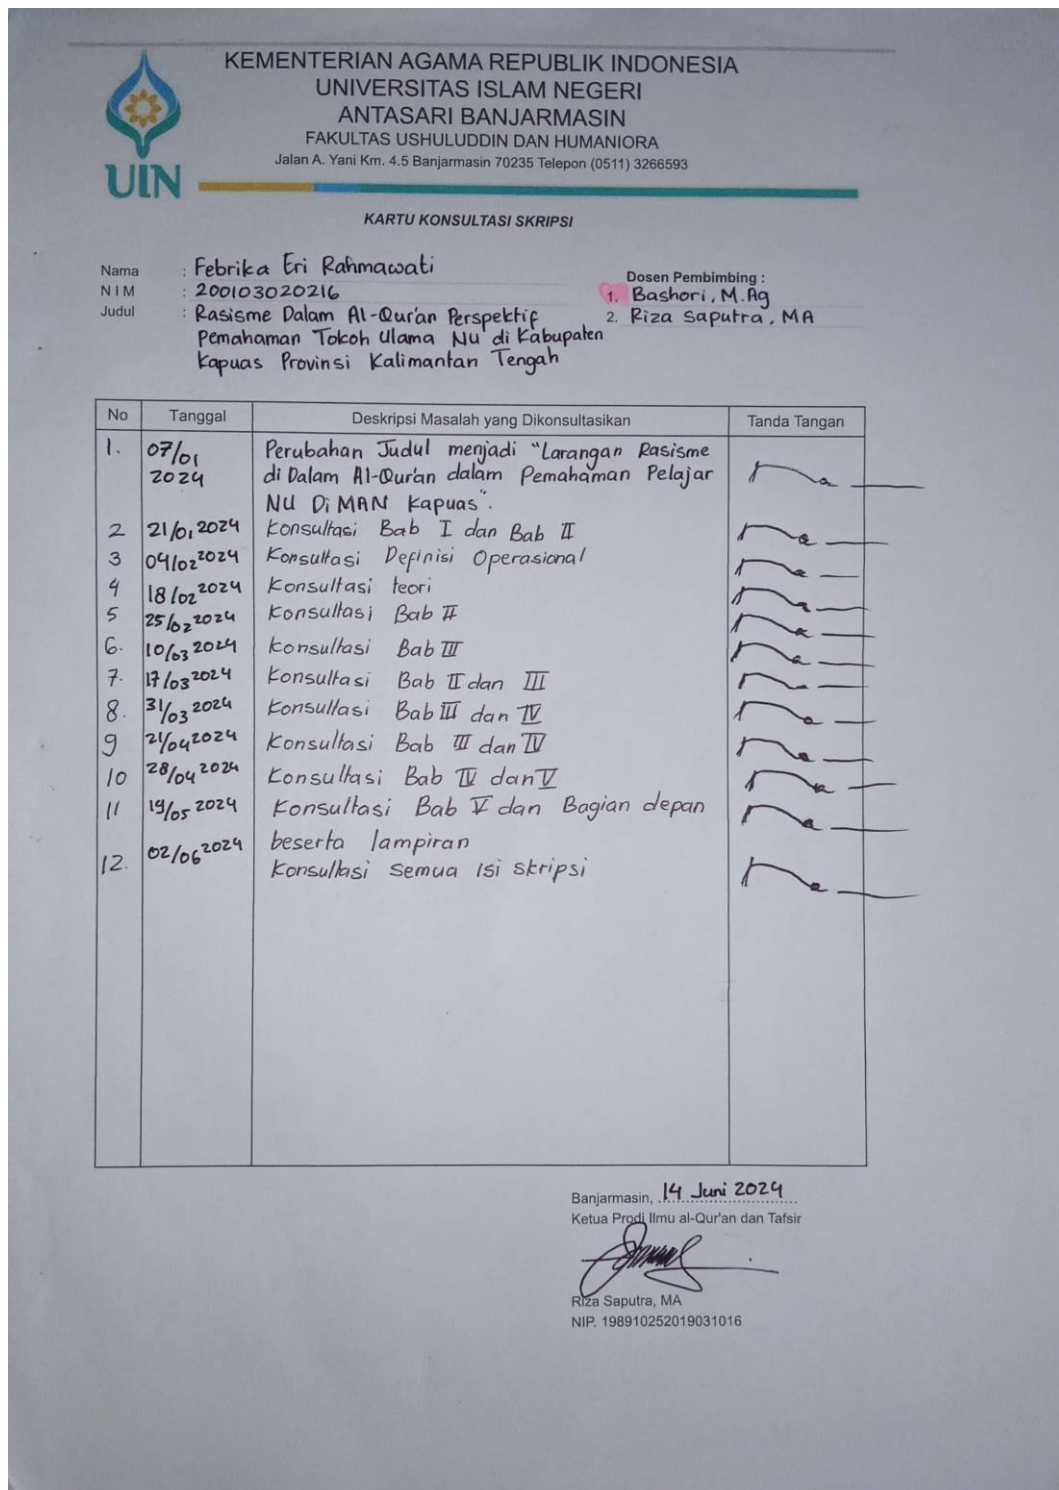 KEMENTERIAN AGAMA REPUBLIK INDONESIA
UNIVERSITAS ISLAM NEGERI
ANTASARI BANJARMASIN
FAKULTAS USHULUDDIN DAN HUMANIORA
Jalan A. Yani Km. 4.5 Banjarmasin 70235 Telepon (0511) 3266593
UIN
KARTU KONSULTASI SKRIPSI
Nama : Febrika Eri Rahmawati
NIM : 200103020216
Judul : Rasisme Dalam Al-Qur'an Perspektif
Pemahaman Tokoh Ulama NU di Kabupaten
Kapuas Provinsi Kalimantan Tengah
Dosen Pembimbing :
1. Bashori, M.Ag
2. Riza Saputra, MA
No Tanggal Deskripsi Masalah yang Dikonsultasikan Tanda Tangan
1. 07/01 2024 Perubahan Judul menjadi "Larangan Rasisme
di Dalam Al-Qur'an dalam Pemahaman Pelajar
NU Di MAN Kapuas".
2 21/01 2024 Konsultasi Bab I dan Bab II
3 04/02 2024 Konsultasi Definisi Operasional
4 18/02 2024 Konsultasi teori
5 25/02 2024 Konsultasi Bab II
6. 10/03 2024 Konsultasi Bab III
7. 17/03 2024 Konsultasi Bab II dan III
8. 31/03 2024 Konsultasi Bab III dan IV
9 21/04 2024 Konsultasi Bab III dan IV
10 28/04 2024 Konsultasi Bab IV dan V
11 19/05 2024 Konsultasi Bab V dan Bagian depan
beserta lampiran
12. 02/06 2024 Konsultasi semua isi skripsi
Banjarmasin, 14 Juni 2024
Ketua Prodi Ilmu al-Qur'an dan Tafsir
Riza Saputra, MA
NIP. 198910252019031016